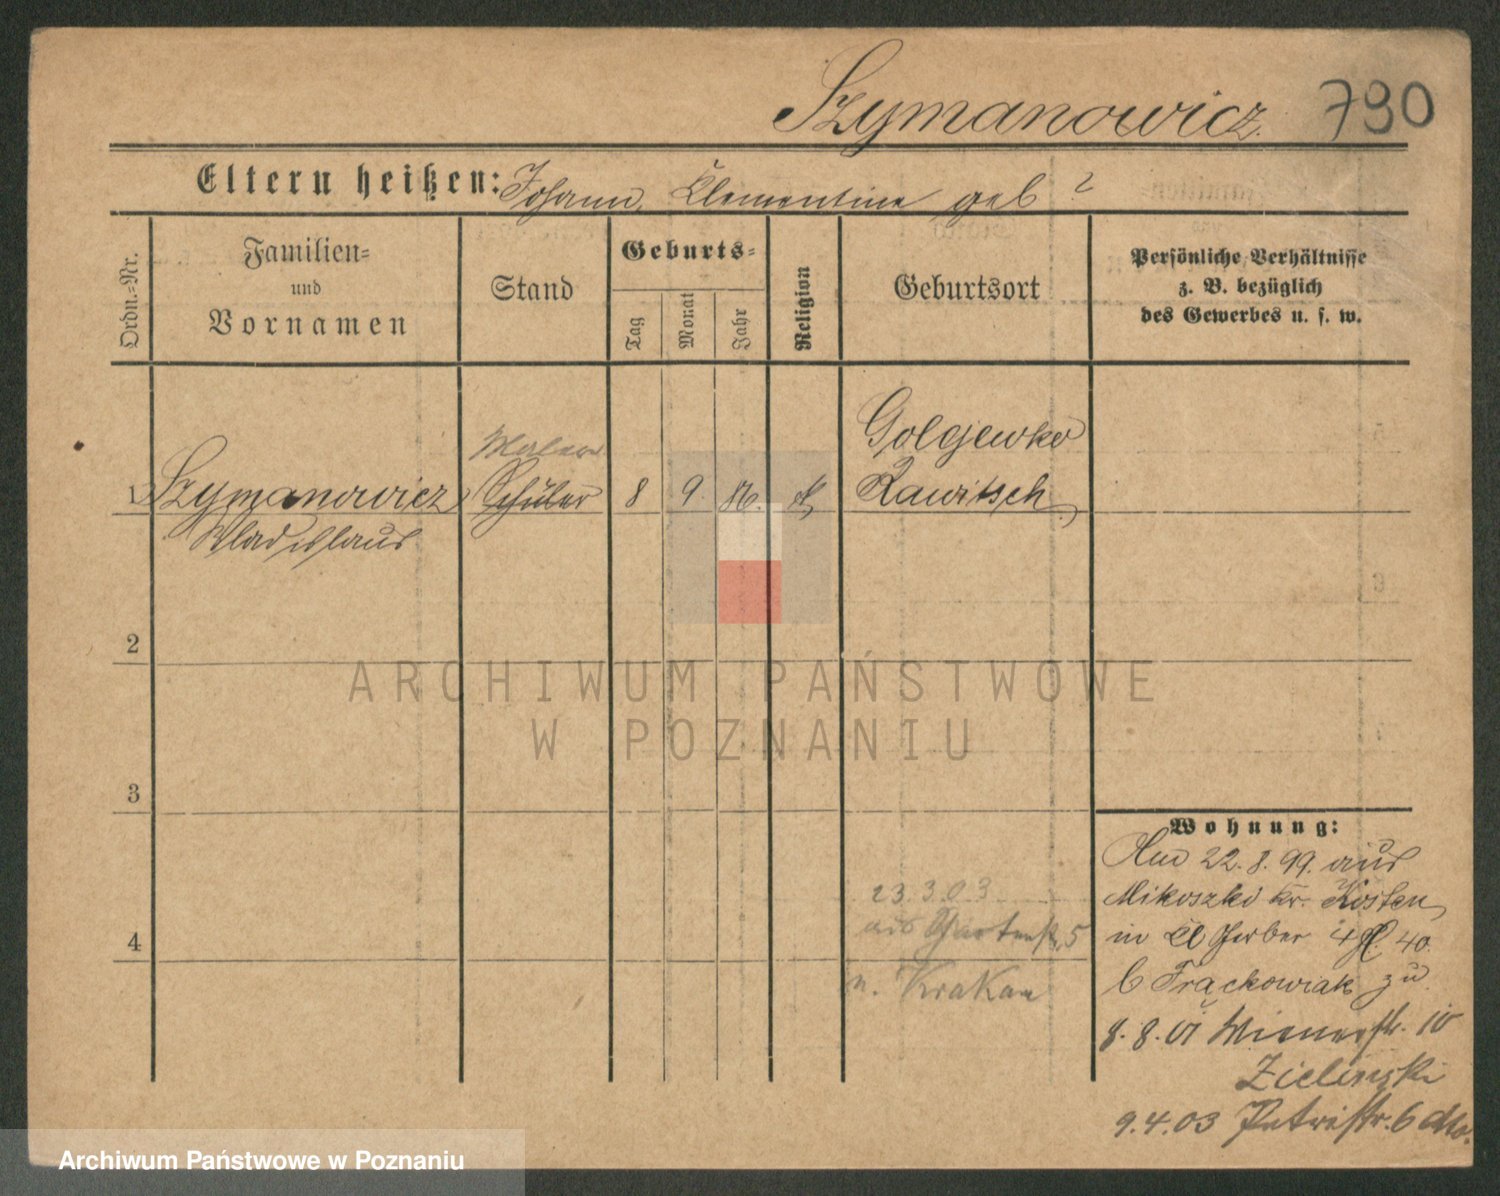 Szymanowicz. 790
Eltern heißen: Johann, Clementine geb ?
Ordn.-Nr.
Familien-
und
Vornamen
Stand
Geburts-
Tag
Monat
Jahr
Religion
Geburtsort
Persönliche Verhältnisse
z. B. bezüglich
des Gewerbes u. s. w.
Maler
Golejewko
1 Szymanowicz Schüler 8 9. 86. k Rawitsch
Wladislaus
2
3
4
ARCHIWUM PAŃSTWOWE
W POZNANIU
23.3.03
aus Gartenstr. 5
n. Krakau
Wohnung:
Am 22.8.99. aus
Mikoszki Kr. Kosten
in Gerber 40.
b Frąckowiak zu
8.8.01 Wienerstr. 10
Zielinski
9.4.03 Petristr. 6 dto.
Archiwum Państwowe w Poznaniu